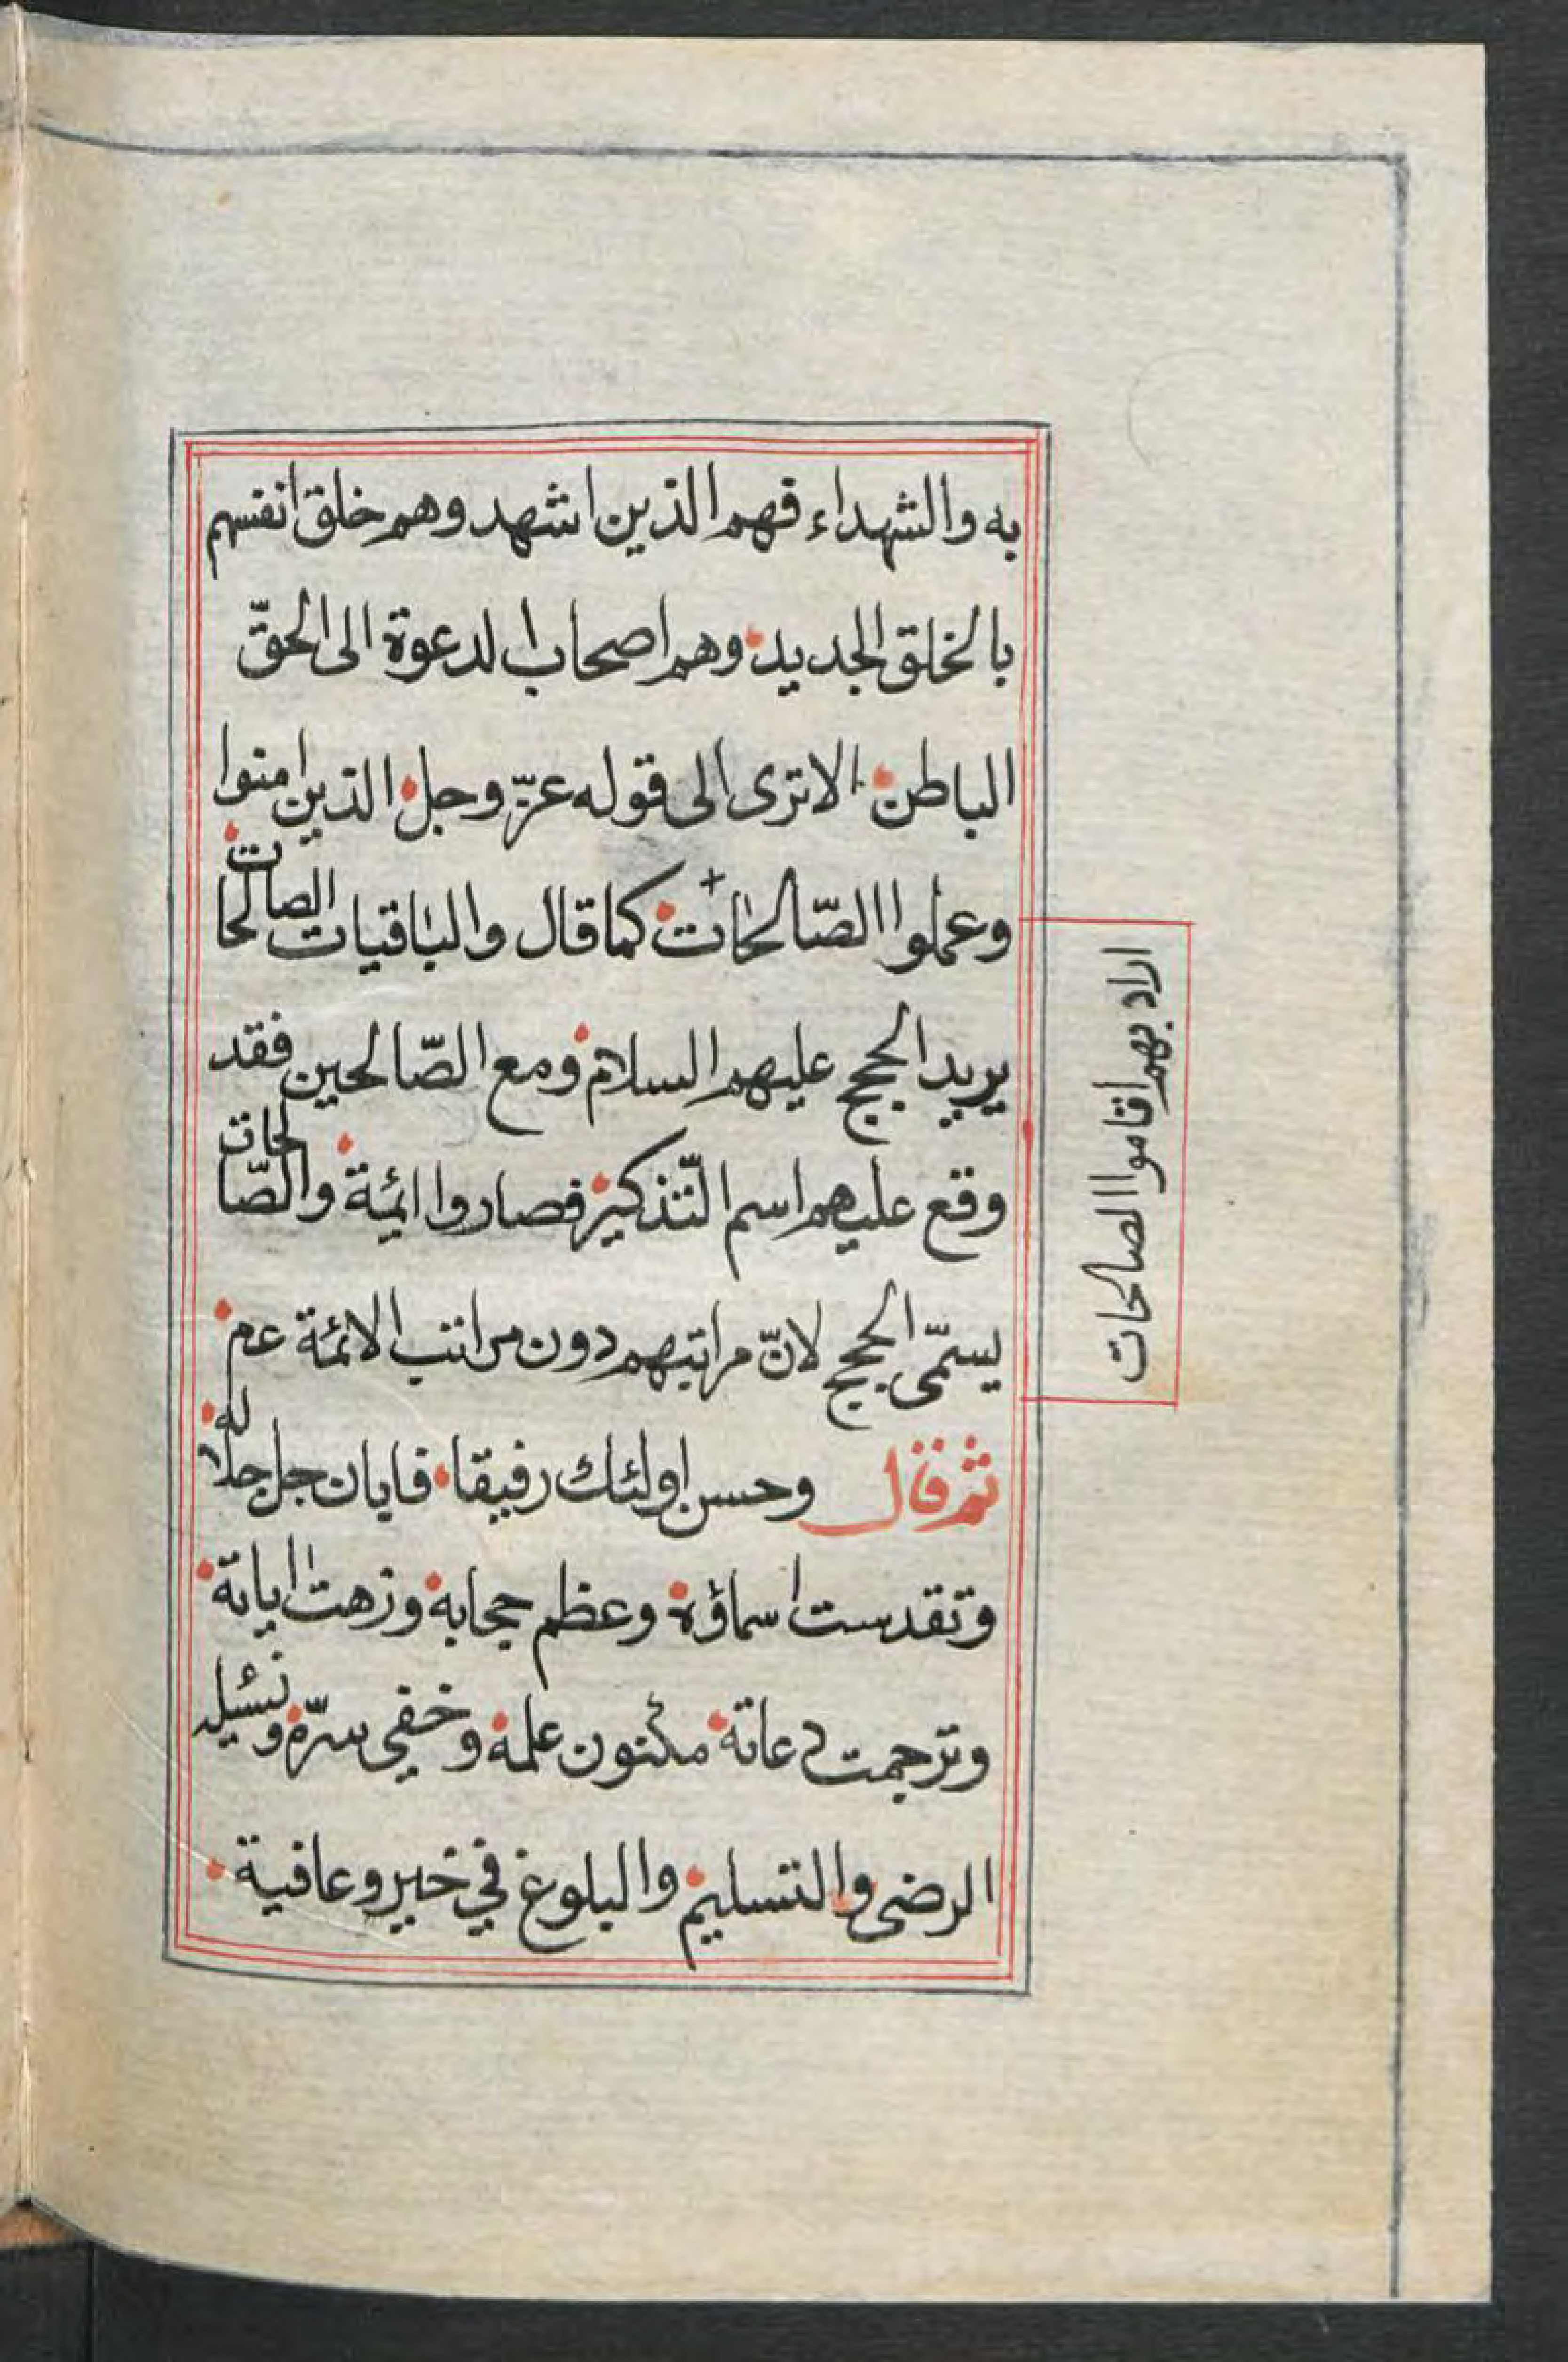 به والشهداء فهم الذين اشهد وهم خلق انفسهم
بالخلق الجديد وهم اصحاب الدعوة الى الحقّ
الباطن الا ترى الى قوله عزّ وجل الذين امنوا
وعملوا الصّالحات كما قال والباقيات الصالحات
يريد الحجج عليهم السلام ومع الصّالحين فقد
وقع عليهم اسم التّذكير فصاروا ائمة والصّالحات
يسمّى الحجج لانّ مراتبهم دون مراتب الائمة عم
ثم قال وحسن اولئك رفيقا فابان جل جلاله
وتقدست اسماؤه وعظم حجابه وزهت اياته
وترجمت دعاته مكنون علمه وخفي سرّه ونسئله
الرضى والتسليم والبلوغ في خير وعافية
اراد بهم اقاموا الصالحات